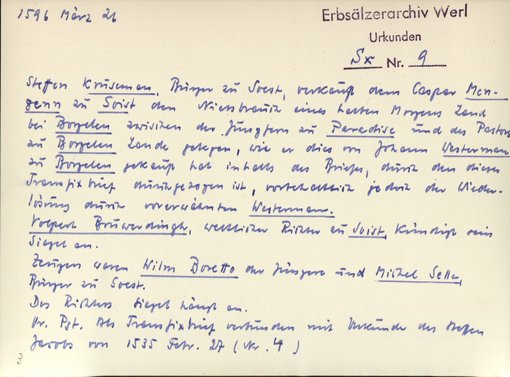 1596 März 26
Erbsälzerarchiv Werl
Urkunden
Sx Nr. 9
Steffen Kruseman, Bürger zu Soest, verkauft dem Caspar Men-
genn zu Soist den Niessbrauch eines halben Morgens Land
bei Borgelen zwischen der Jungfern zu Paradise und des Pastors
zu Borgelen Lande gelegen, wie er dies von Johann Westerman
zu Borgelen gekauft hat inhalts des Briefes, durch den dieser
Transfixbrief durchgezogen ist, vorbehaltlich jedoch der Wieder-
lösung durch vorerwähnten Westerman.
Volpert Bruwerdingk, weltlicher Richter zu Soist, kündigt sein
Siegel an.
Zeugen waren Wilm Boretto der Jüngere und Michel Selle,
Bürger zu Soest.
Des Richters Siegel hängt an.
Or. Pgt. Als Transfixbrief verbunden mit Urkunde des Steffen
Jacobs von 1535 Febr. 27 (Nr. 4)
3